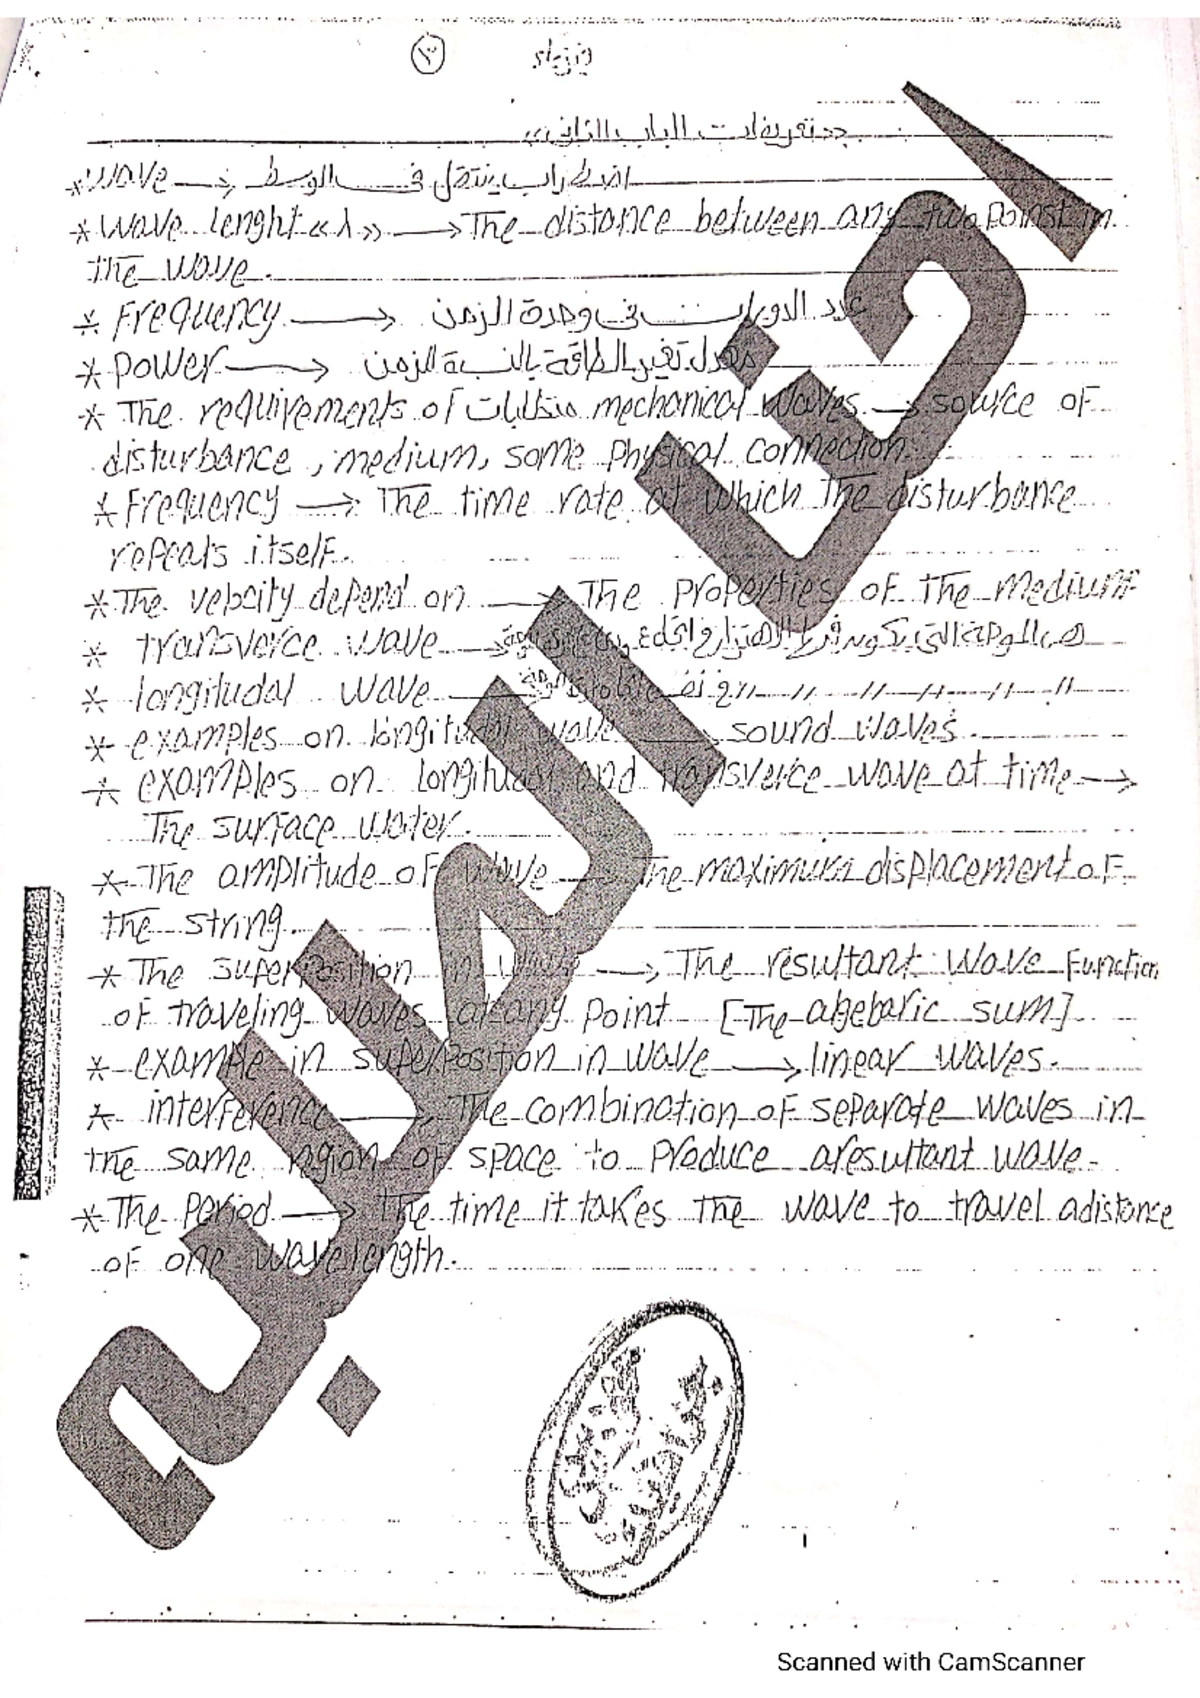 ٣ فيزياء
<<تعريفات الباب الثانى>>
* wave → اضطراب ينتقل فى الوسط
* wave lenght «λ» → The distance between any two Poinst in
the wave.
* Frequency → عدد الدورات فى وحدة الزمن
* power → معدل تغير الطاقة بالنسبة للزمن
* The requirements of متطلبات mechanical waves → source of
disturbance, medium, some Physical connection.
* Frequency → The time rate at which The disturbance
repeats itself.
* The velocity depend on → The properties of the medium
* transverce wave → هى الموجة التى يكون فيها الاهتزاز فى اتجاه
* longitudal wave → // // // // // //
* examples on longitudal wave sound waves.
* examples on longitudal and transverce wave at time →
The surface water.
* The amplitude of wave → The maximum displacement of
the string.
* The superposition in wave → The resultant wave Function
of traveling waves at any point [The algebaric sum]
* example in superposition in wave → linear waves.
* interference → The combination of separate waves in
the same rigion of space to produce aresultant wave.
* The Period → The time it takes The wave to travel adistance
of one wavelength.
Scanned with CamScanner